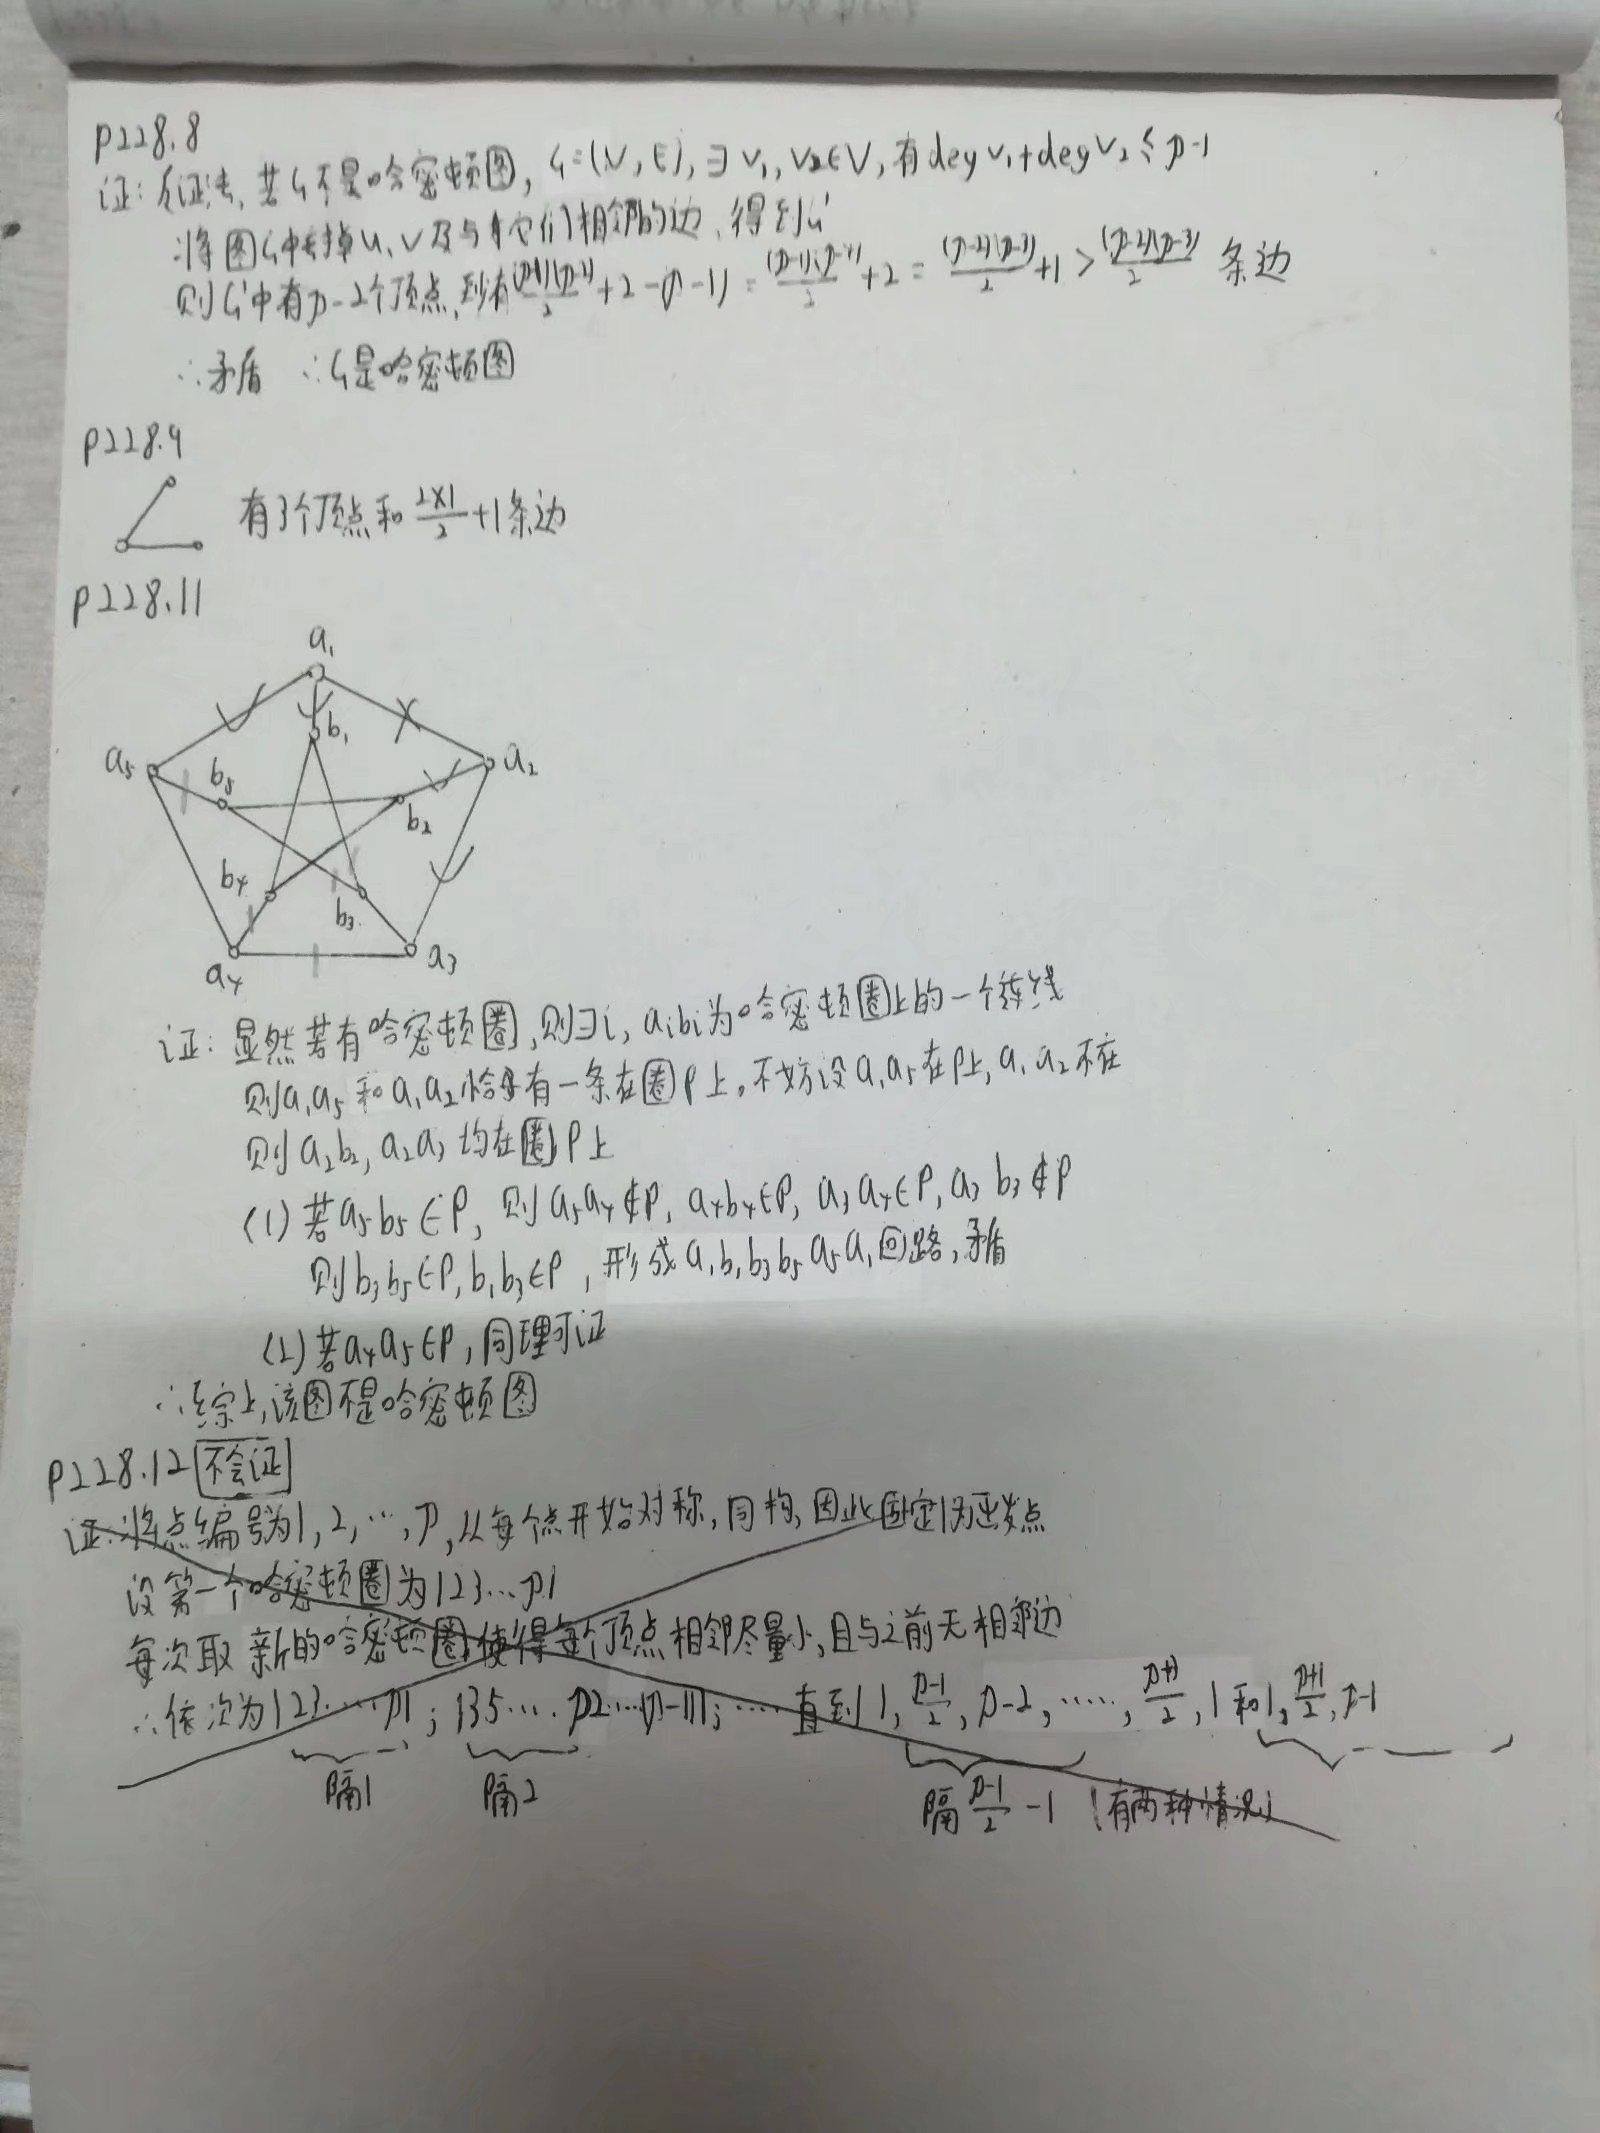 P228.8
证：反证法，若G不是哈密顿图，G=(V,E)，∃v₁,v₂∈V，有deg v₁+deg v₂≤p-1
将图G中去掉u、v及与它们相邻的边，得到G'
则G'中有p-2个顶点，到有(p-1)(p-2)/2+2-(p-1)= +2=(p-2)(p-3)/2+1>(p-2)(p-3)/2 条边
∴矛盾 ∴G是哈密顿图
P228.9
有3个顶点和2×1/2+1条边
P228.11
a₁
b₁
a₅ b₅ a₂
b₂
b₄ b₃
a₄ a₃
证：显然若有哈密顿圈，则∃i，aᵢbᵢ为哈密顿圈上的一个
则a₁a₅和a₁a₂恰有一条在圈P上。不妨设a₁a₅在P上，a₁a₂不在
则a₂b₂，a₂a₃均在圈P上
(1)若a₅b₅∈P，则a₅a₄∉P，a₄b₄∈P，a₃a₄∈P，a₃b₃∉P
则b₃b₅∈P，b₁b₃∈P，形成a₁b₁b₃b₅a₅a₁回路，矛盾
(2)若a₄a₅∈P，同理可证
∴综上，该图不是哈密顿图
P228.12 不会证
证：将点编号为1，2，…，p，从每个点开始对称，同构，因此固定1为出发点
设第一个哈密顿圈为123…p1
每次取新的哈密顿圈，使得每个顶点相邻尽量小，且与之前无相邻边
∴依次为123…p1；135…p2…(p-1)1；…直到1，p-1/2，p-2，……，p+1/2，1和1，p+1/2，p-1
隔1 隔2 隔p-1/2-1（有两种情况）